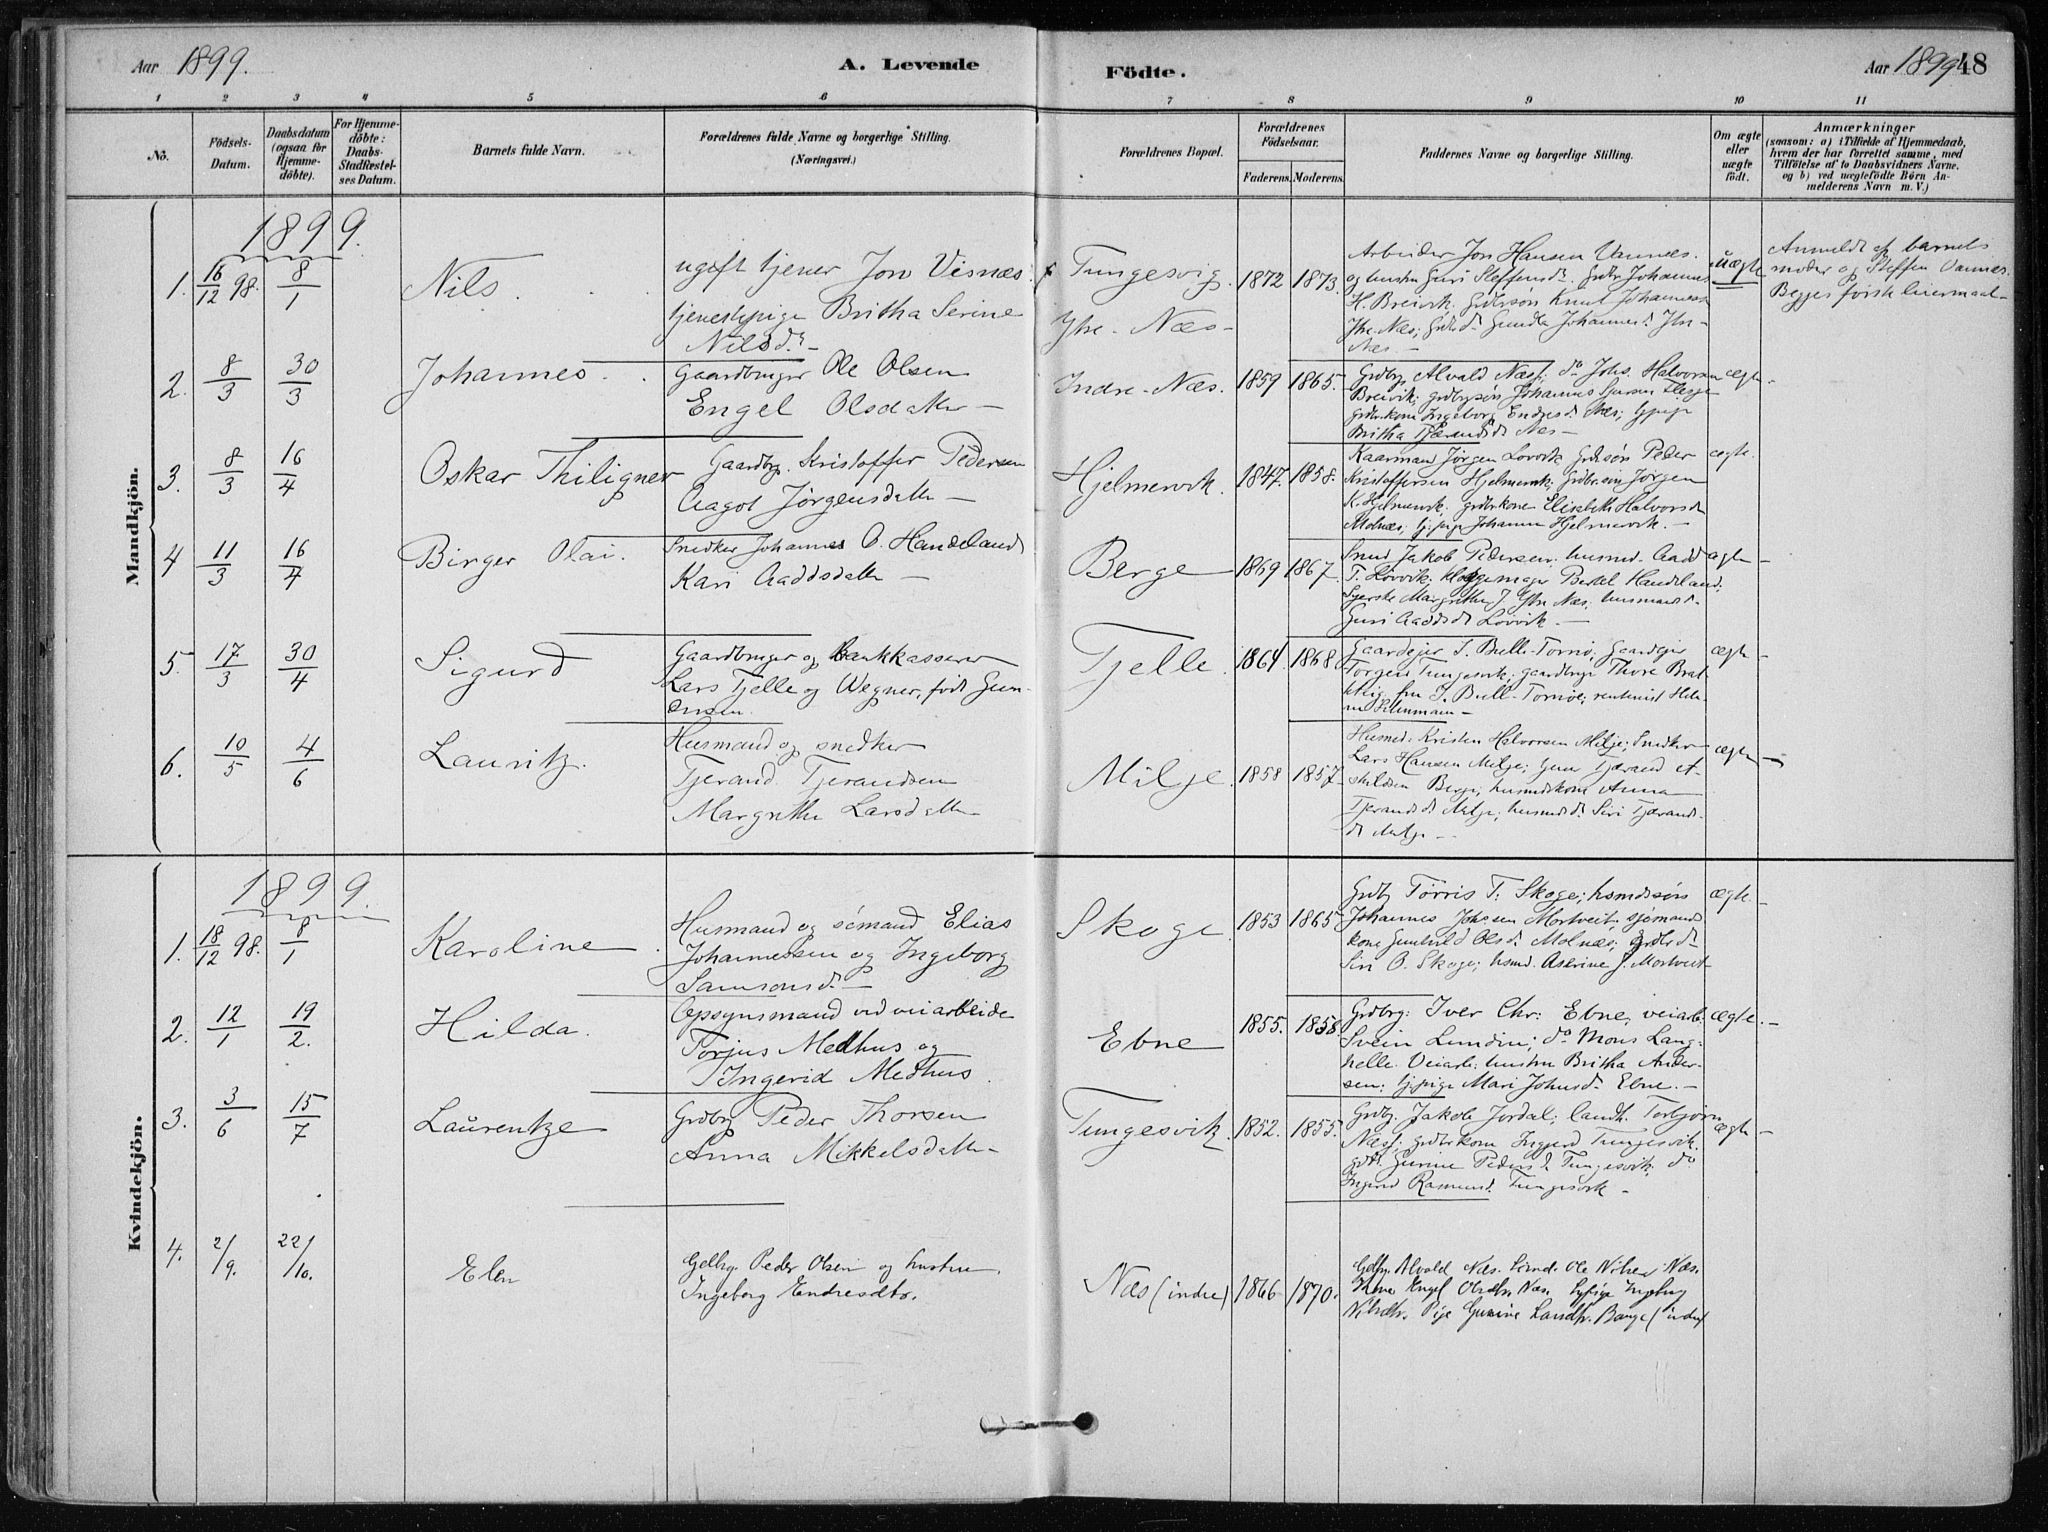 Aar 1899.
A. Levende
Födte.
Aar 1899
48
1 2 3 4 5 6 7 8 9 10 11
No.
Födsels-
Datum.
Daabsdatum
(ogsaa for
Hjemme-
döbte).
For Hjemme-
döbte:
Daabs-
Stadfæstel-
ses Datum.
Barnets fulde Navn.
Forældrenes fulde Navne og borgerlige Stilling.
(Næringsvei.)
Forældrenes Bopæl.
Forældrenes
Födselsaar.
Faderens. Moderens.
Faddernes Navne og borgerlige Stilling.
Om ægte
eller
uægte
födt.
Anmærkninger
(saasom: a) i Tilfælde af Hjemmedaab,
hvem der har forrettet samme, med
Tilföielse af to Daabsvidners Navne.
og b) ved uægtefödte Börn An-
melderens Navn m. V.)
Mandkjön.
1899.
1. 16/12 98. 8/1
Nils.
ugift tjener Jon Visnæs
tjenestepige Britha Serine
Nilsd.
Tungesvig
Ytre-Næs-
1872 1873.
Arbeider Jon Hansen Vannes.
og hustru Guri Steffensd. Grdbr. Johannes
H. Breivik; grdbrsøn Knut Johanness
Ytre-Næs; Grdbrd. Gunda Johannesd. Ytre-
Næs.-
uægte
Anmeldt af barnets
moder og Steffen Vannes.
Begges første leiermaal-
2. 8/3 30/3
Johannes.
Gaardbruger Ole Olsen
Engel Olsdatter-
Indre-Næs.
1859 1865.
Grdbg. Alvald Næss; do Johs. Halvorsen
Breivik; grdbrgsøn Johannes
grdbrkone Ingeborg Endresd. Næs; tjpige
Britha Tjerandsd. Næs-
ægte-
3. 8/3 16/4
Oskar Thiligner
Gaardbg. Kristoffer Pedersen
Aagot Jørgensdatter-
Hjelmervik.
1847. 1858.
Kaarmand Jørgen Lovvik Grdbrsøn Peder
Kristoffersen Hjelmervik; Grdbr.søn Jørgen
K. Hjelmervik; grdbrkone Elisabeth Halvorsd
Molnæs; tj.pige Johanna Hjelmervik.-
ægte.
4 11/3 16/4
Birger Olai.
Snedker Johannes O. Handeland
Kari Aaddsdatter-
Berge
1869 1867.
Smed Jakob Pedersen; husmd. Aadd
T. Løvvik; Bertel Handeland;
Syerske Margrethe J. Ytre Næs; husmandsd.
Guri Aaddsd. Løvvik.-
ægte-
5. 17/3 30/4
Sigurd
Gaardbruger og bankkasserer
Lars Tjelle og Wegner, født Gun-
dersen.
Tjelle.
1864 1868.
Gaardejer I. Bull-Tornø; Gaardejer
Torgeir Tungesvik; gaardbrge Thore Brat
thig; fru J. Bull-Tornøe; rentenist Hele
ne
ægte-
6. 10/5 4/6
Lauritz.
Husmand og snedker
Tjerand Tjerandsen
Margrethe Larsdatter
Milje.
1858 1857.
Husmd. Kristen Halvorsen Milje; Snedker
Lars Hansen Milje; Tjærand A-
skildsen Berge; husmdskone Anna
Tjerandsd. Milje; husmdsd. Siri Tjærands
d. Milje-
ægte-
Kvindekjön.
1899.
1. 18/12 98. 8/1
Karoline
Husmand og sømand Elias
Johannessen og Ingeborg
Samsonsd.-
Skoge
1853 1865
Grdbg Tørris T. Skoge; husmdssøn
Johannes Johssen Mortveit; sjømands
kone Gunhild Olsd. Molnæs; grdbrd.
Siri O. Skoge; husmd. Aserine J. Mortveit-
ægte.-
2. 12/1 19/2.
Hilda.
Opsynsmand ved veiarbeide
Torjus Medhus og
Ingerid Medhus.
Ebne
1855. 1858.
Grdbrg: Iver Chr: Ebne, veiarb.
Svein Lundin; do Mons Lang-
helle. Veiarb. hustru Britha Ander-
sen; tj.pige Mari Johnsd. Ebne.-
ægte.-
3. 3/6 15/7
Laurentze
Grdbrg Peder Thorsen
Anna Mikkelsdatter-
Tungesvik.
1852. 1855.
Grdbg. Jakob Jordal; landh. Torbjørn
Næss; grdbrkone Ingerd Tungesvik.
grdd. Gurine Pedersd. Tungesvik; do
Ingerid Rasmusd. Tungesvik-
ægte-
4. 2/9. 22/10.
Elen
Gdbrg. Peder Olsen og hustru
Ingeborg Endresdtr.
Næs (indre)
1866 1870.
Gdbr. Alvald Næs. Smd. Ole Nilsen Næs.
Kone Engel Olsdtr. Næs. Tj.pige Ingeborg
Nilsdtr. Pige Gurine Larsdtr. Bauge (indre)